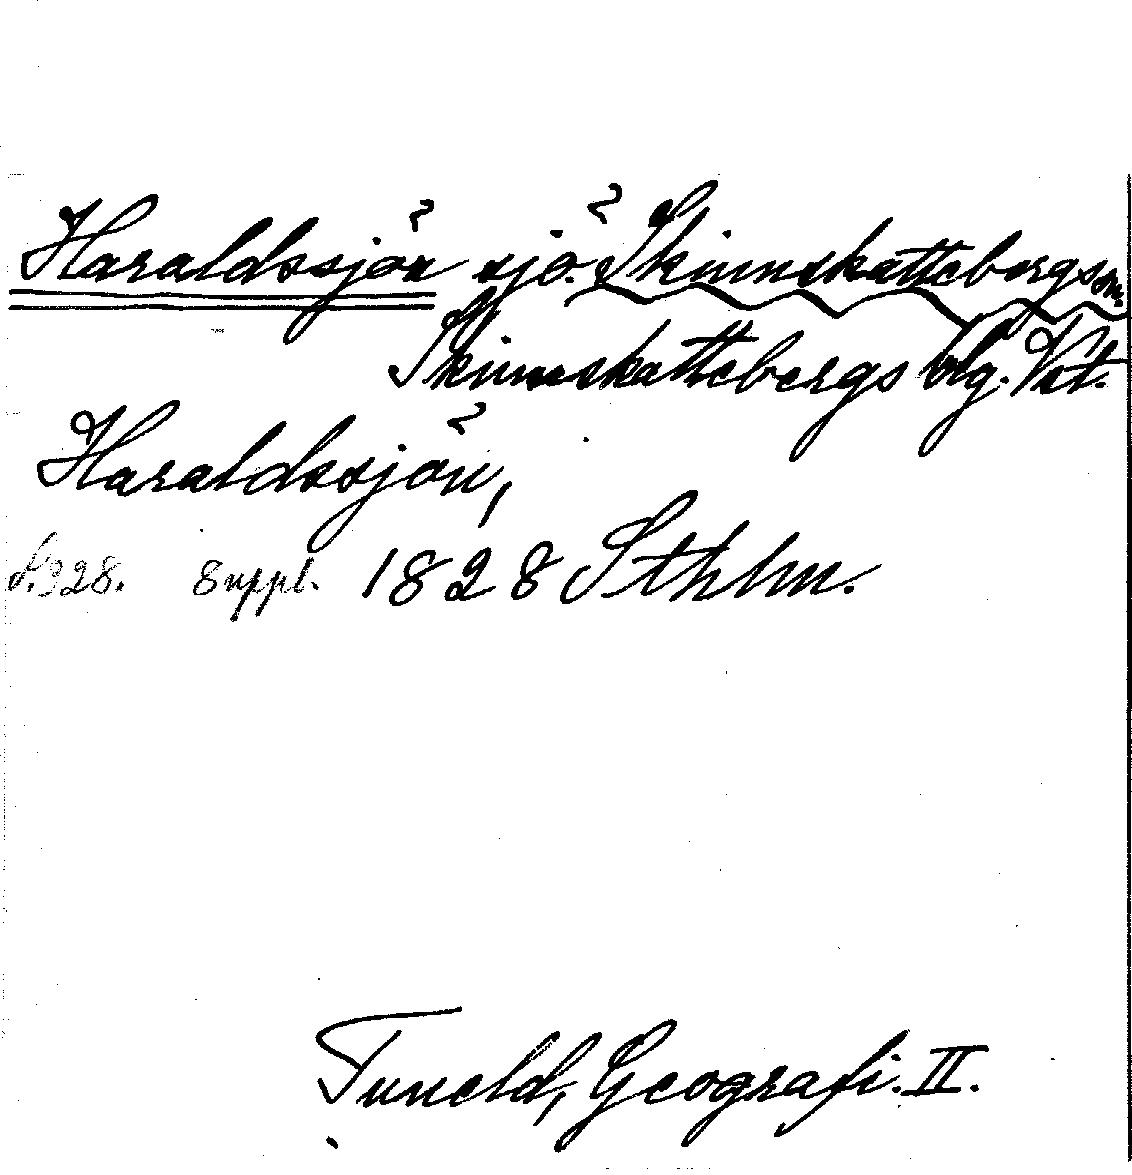 Haraldssjön sjö. Skinnskattebergs sn.
Skinnskattebergs blg. Vst.
Haraldssjön,
s. 328. Suppl. 1828 Sthlm.
Tuneld, Geografi. II.